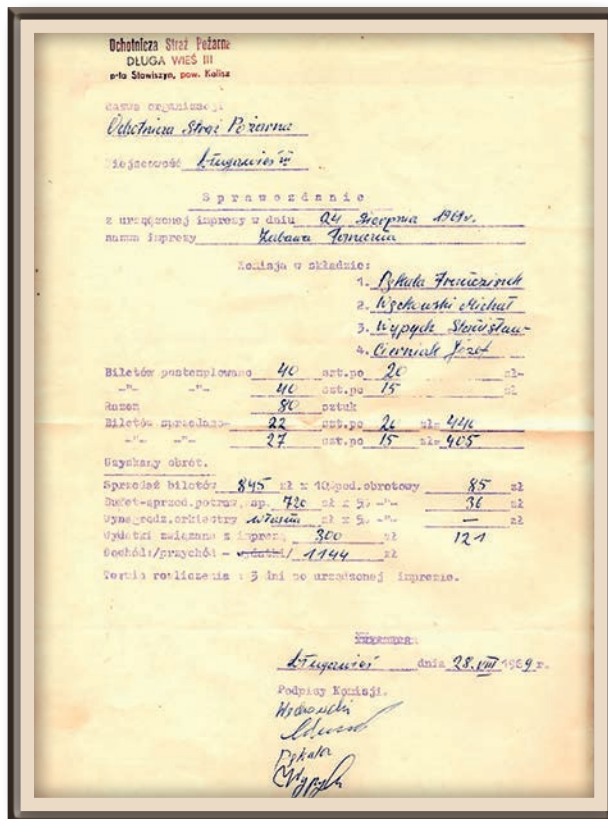 Ochotnicza Straż Pożarna
DŁUGA WIEŚ III
p-ta Stawiszyn, pow. Kalisz
nazwa organizacji
Ochotnicza Straż Pożarna
Miejscowość Długawieś III
Sprawozdanie
z urządzonej imprezy w dniu 24 Sierpnia 1969r.
nazwa imprezy Zabawa Taneczna
Komisja w składzie:
1. Pękala Franciszek
2. Węckowski Michał
3. Wypych Stanisław
4. Cierniak Józef
Biletów postemplowano 40 szt.po 20 zł-
-"- -"- 40 szt.po 15 zł
Razem 80 sztuk
Biletów sprzedano- 22 szt.po 20 zł- 440
-"- -"- 27 szt.po 15 zł- 405
Uzyskany obrót.
Sprzedaż biletów 845 zł x 10%pod.obrotowy 85 zł
Bufet-sprzed.potraw, sp. 720 zł x 5% -"- 36 zł
Wynagrodz.orkiestry własna zł x 5% -"- — zł
Wydatki związane z imprezą 300 zł 121
Dochód:/przychód - wydatki/ 1144 zł
Termin rozliczenia : 3 dni po urządzonej imprezie.
Długawieś dnia 28.VIII 1969 r.
Podpisy Komisji.
Węckowski
Pękala
Wypych